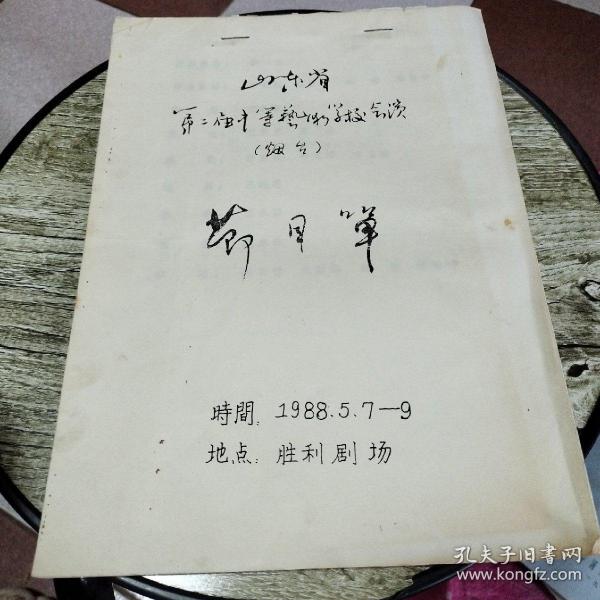 山东省
第二届中等艺术学校会演
(烟台)
節目单
時間: 1988.5.7—9
地点: 胜利剧场
孔夫子旧书网
www.kongfz.com